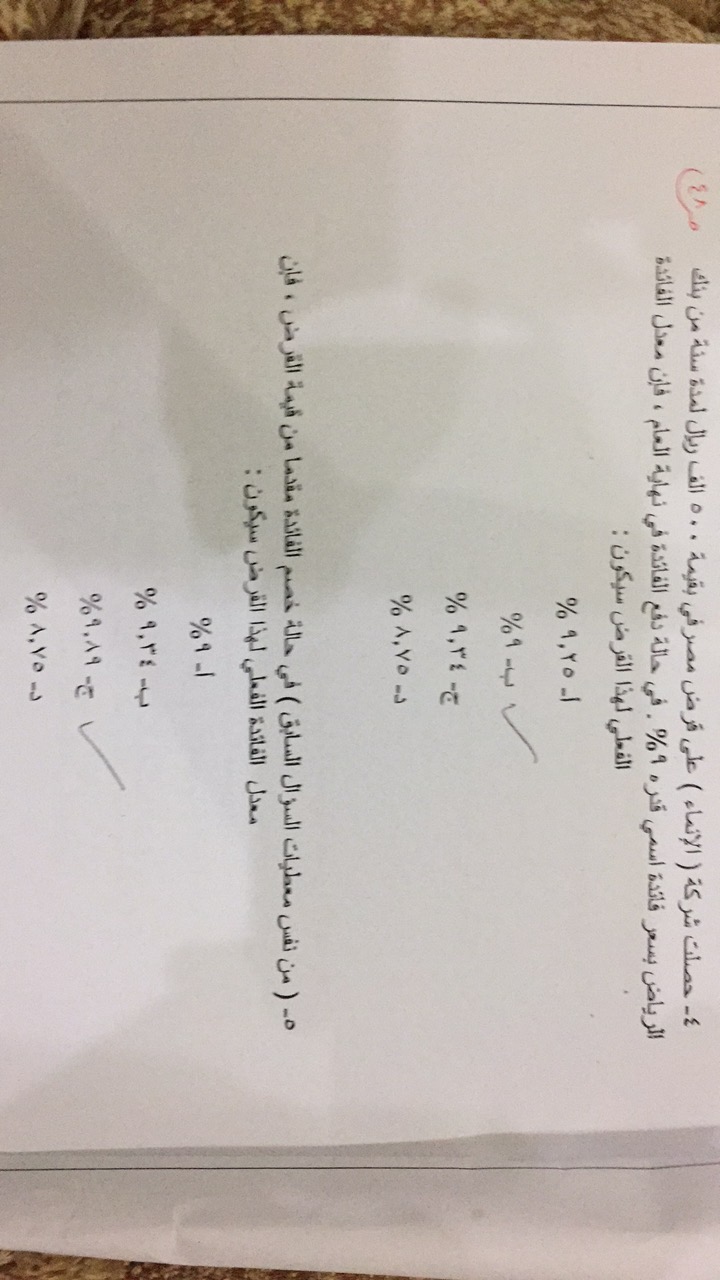 ص٤٨)
٤- حصلت شركة ( الإنماء ) على قرض مصرفي بقيمة ٥٠٠ الف ريال لمدة سنة من بنك
الرياض بسعر فائدة اسمي قدره ٩% . في حالة دفع الفائدة في نهاية العام ، فإن معدل الفائدة
الفعلي لهذا القرض سيكون :
أ- ٩,٢٥ %
ب- ٩%
ج- ٩,٣٤ %
د- ٨,٧٥ %
٥- ( من نفس معطيات السؤال السابق ) في حالة خصم الفائدة مقدما من قيمة القرض ، فإن
معدل الفائدة الفعلي لهذا القرض سيكون :
أ- ٩%
ب- ٩,٣٤ %
ج- ٩,٨٩%
د- ٨,٧٥ %